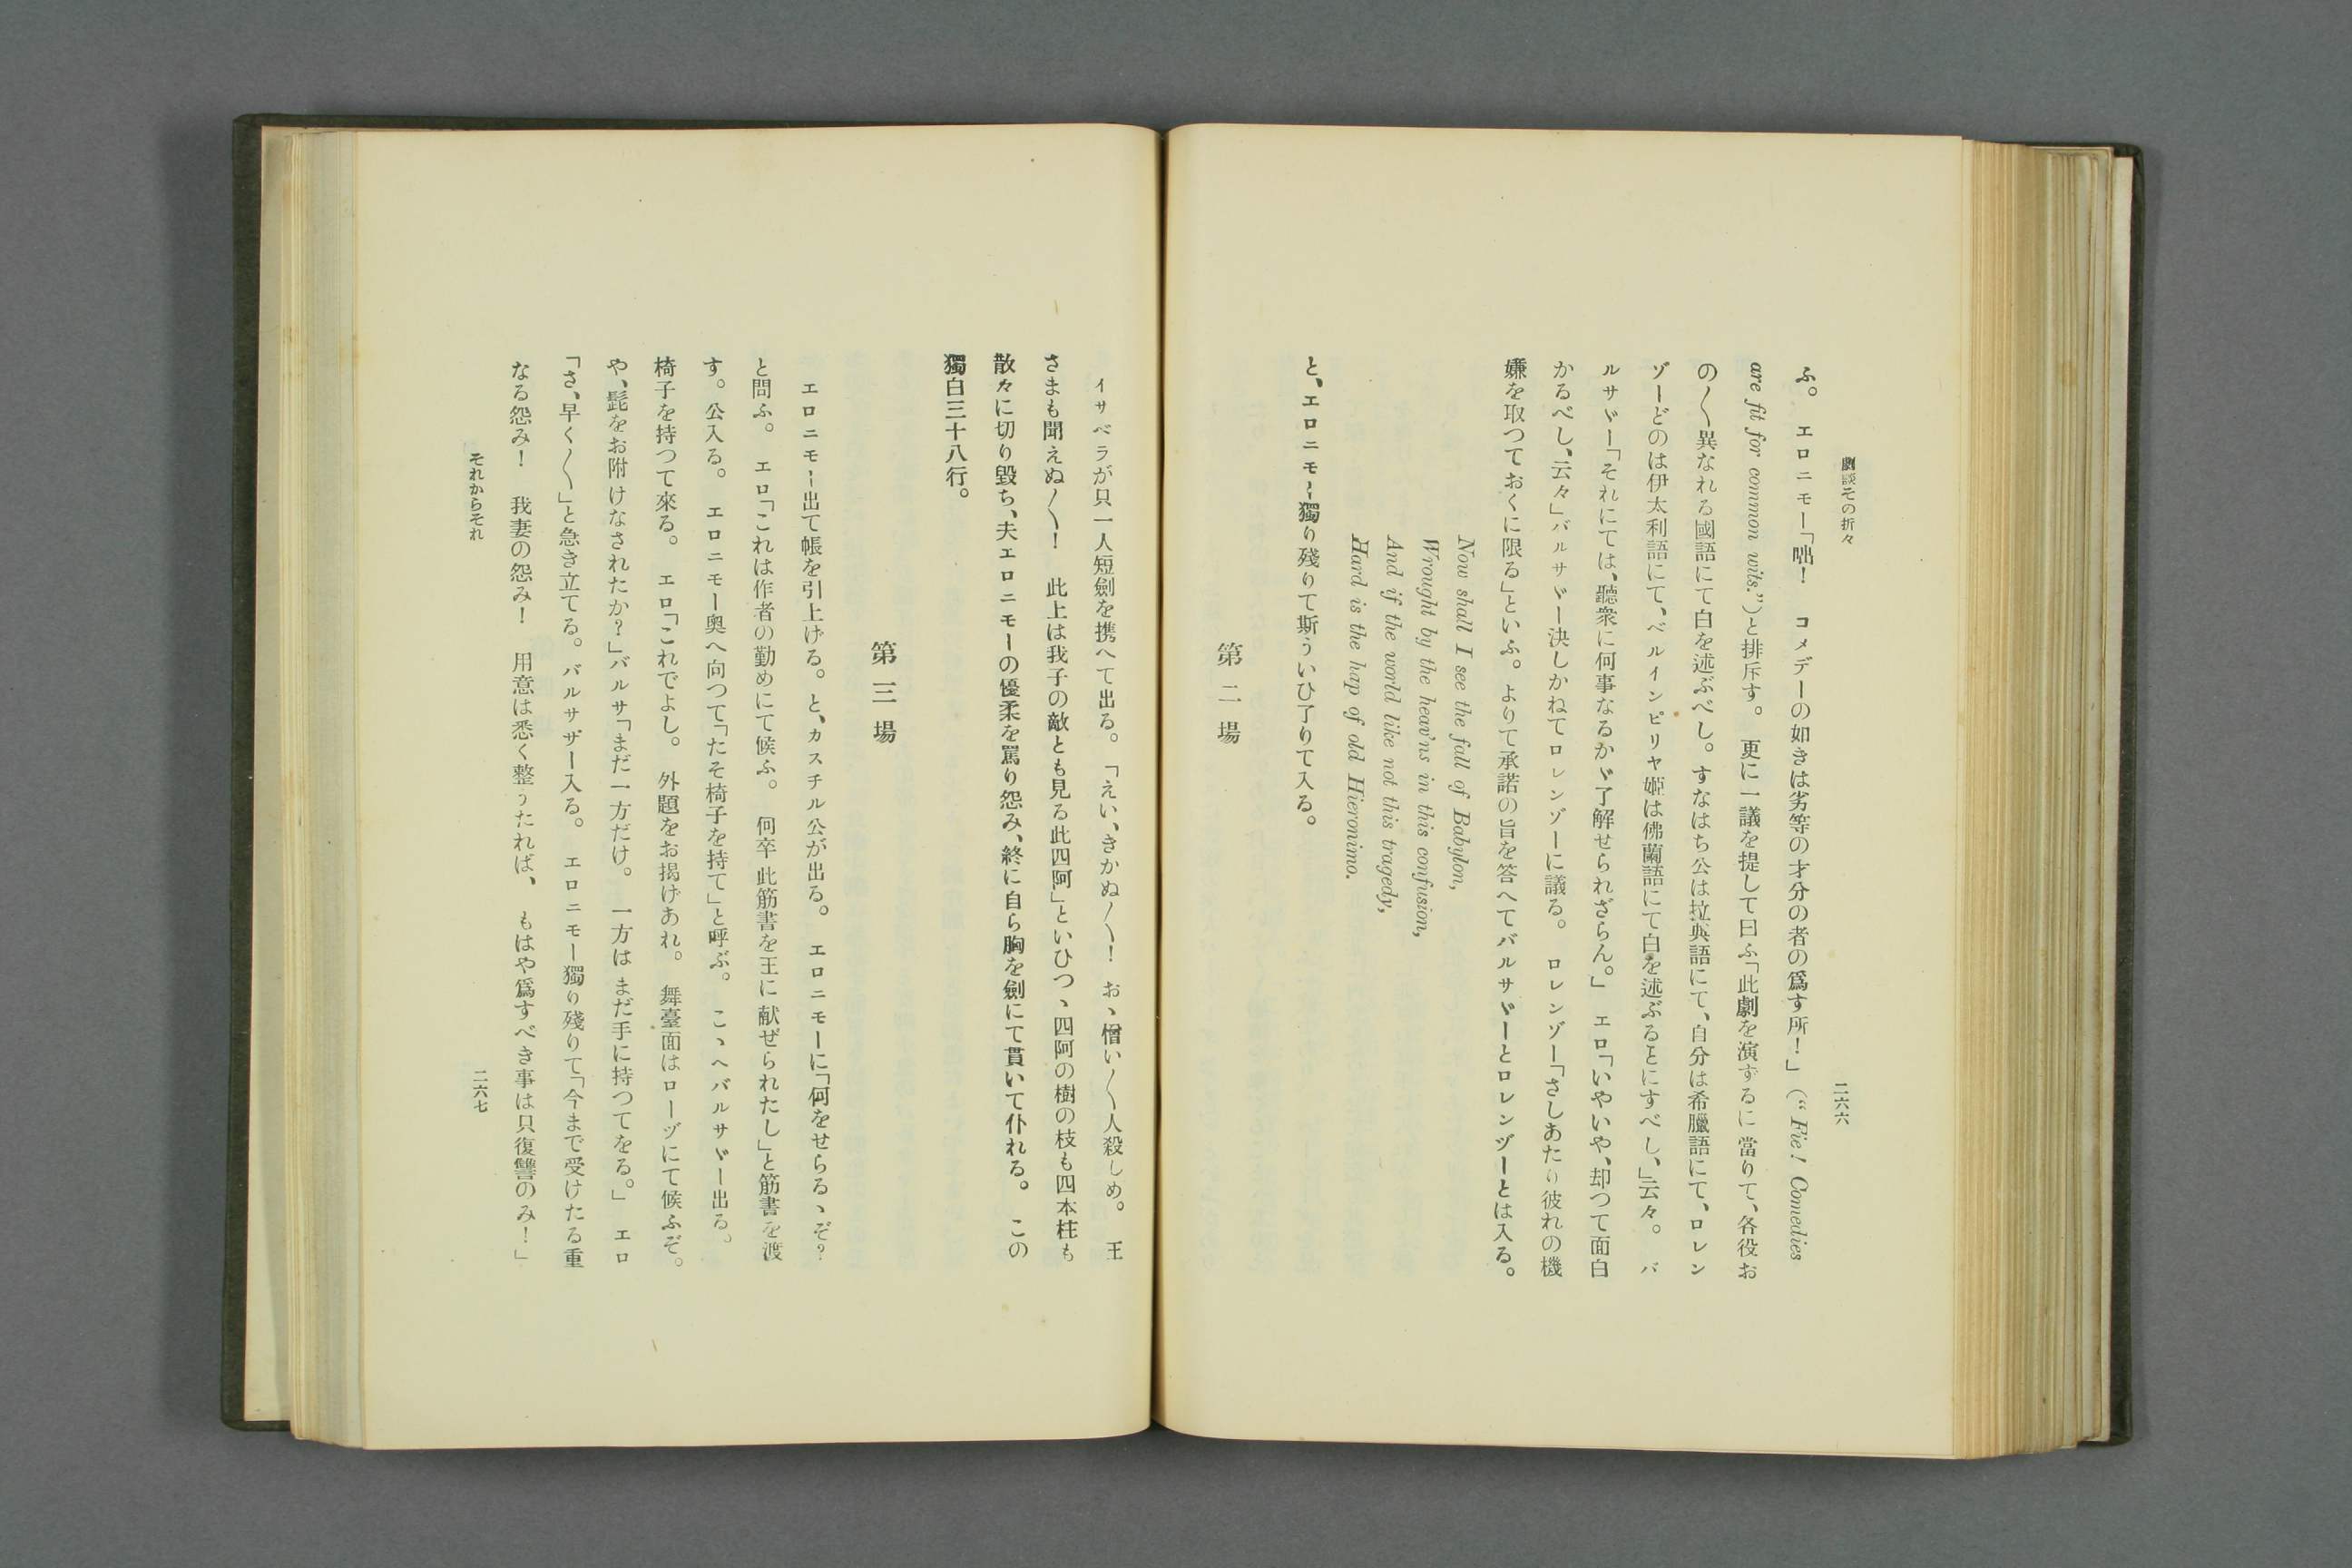 劇談その折々
二六六
ふ。　エロニモー「咄！　コメデーの如きは劣等の才分の者の爲す所！」（“Fie! Comedies
are fit for common wits.”）と排斥す。　更に一議を提して曰ふ「此劇を演ずるに當りて、各役お
の〳〵異なれる國語にて白を述ぶべし。すなはち公は拉典語にて、自分は希臘語にて、ロレン
ゾーどのは伊太利語にて、ベルインピリヤ姫は佛蘭語にて白を述ぶるとにすべし、」云々。　バ
ルサヾー「それにては、聽衆に何事なるかゞ了解せられざらん。」　エロ「いやいや、却つて面白
かるべし、云々」バルサヾー決しかねてロレンゾーに議る。　ロレンゾー「さしあたり彼れの機
嫌を取つておくに限る」といふ。よりて承諾の旨を答へてバルサヾーとロレンヅーとは入る。
Now shall I see the fall of Babylon,
Wrought by the heav'ns in this confusion,
And if the world like not this tragedy,
Hard is the hap of old Hieronimo.
と、エロニモー獨り殘りて斯ういひ了りて入る。
第二場
イサベラが只一人短劍を携へて出る。「えい、きかぬ〳〵！　お、憎い〳〵人殺しめ。　王
さまも聞えぬ〳〵！　此上は我子の敵とも見る此四阿」といひつゝ四阿の樹の枝も四本柱も
散々に切り毀ち、夫エロニモーの優柔を罵り怨み、終に自ら胸を劍にて貫いて仆れる。　この
獨白三十八行。
第三場
エロニモー出て帳を引上げる。と、カスチル公が出る。　エロニモーに「何をせらるゝぞ？
と問ふ。　エロ「これは作者の勤めにて候ふ。　何卒此筋書を王に献ぜられたし」と筋書を渡
す。公入る。　エロニモー奧へ向つて「たそ椅子を持て」と呼ぶ。　こゝへバルサヾー出る。
椅子を持つて來る。　エロ「これでよし。　外題をお揭げあれ。　舞臺面はローヅにて候ふぞ。
や、髭をお附けなされたか？」バルサ「まだ一方だけ。　一方はまだ手に持つてをる。」　エロ
「さ、早く〳〵」と急き立てる。バルサザー入る。　エロニモー獨り殘りて「今まで受けたる重
なる怨み！　我妻の怨み！　用意は悉く整うたれば、もはや爲すべき事は只復讐のみ！」
それからそれ
二六七